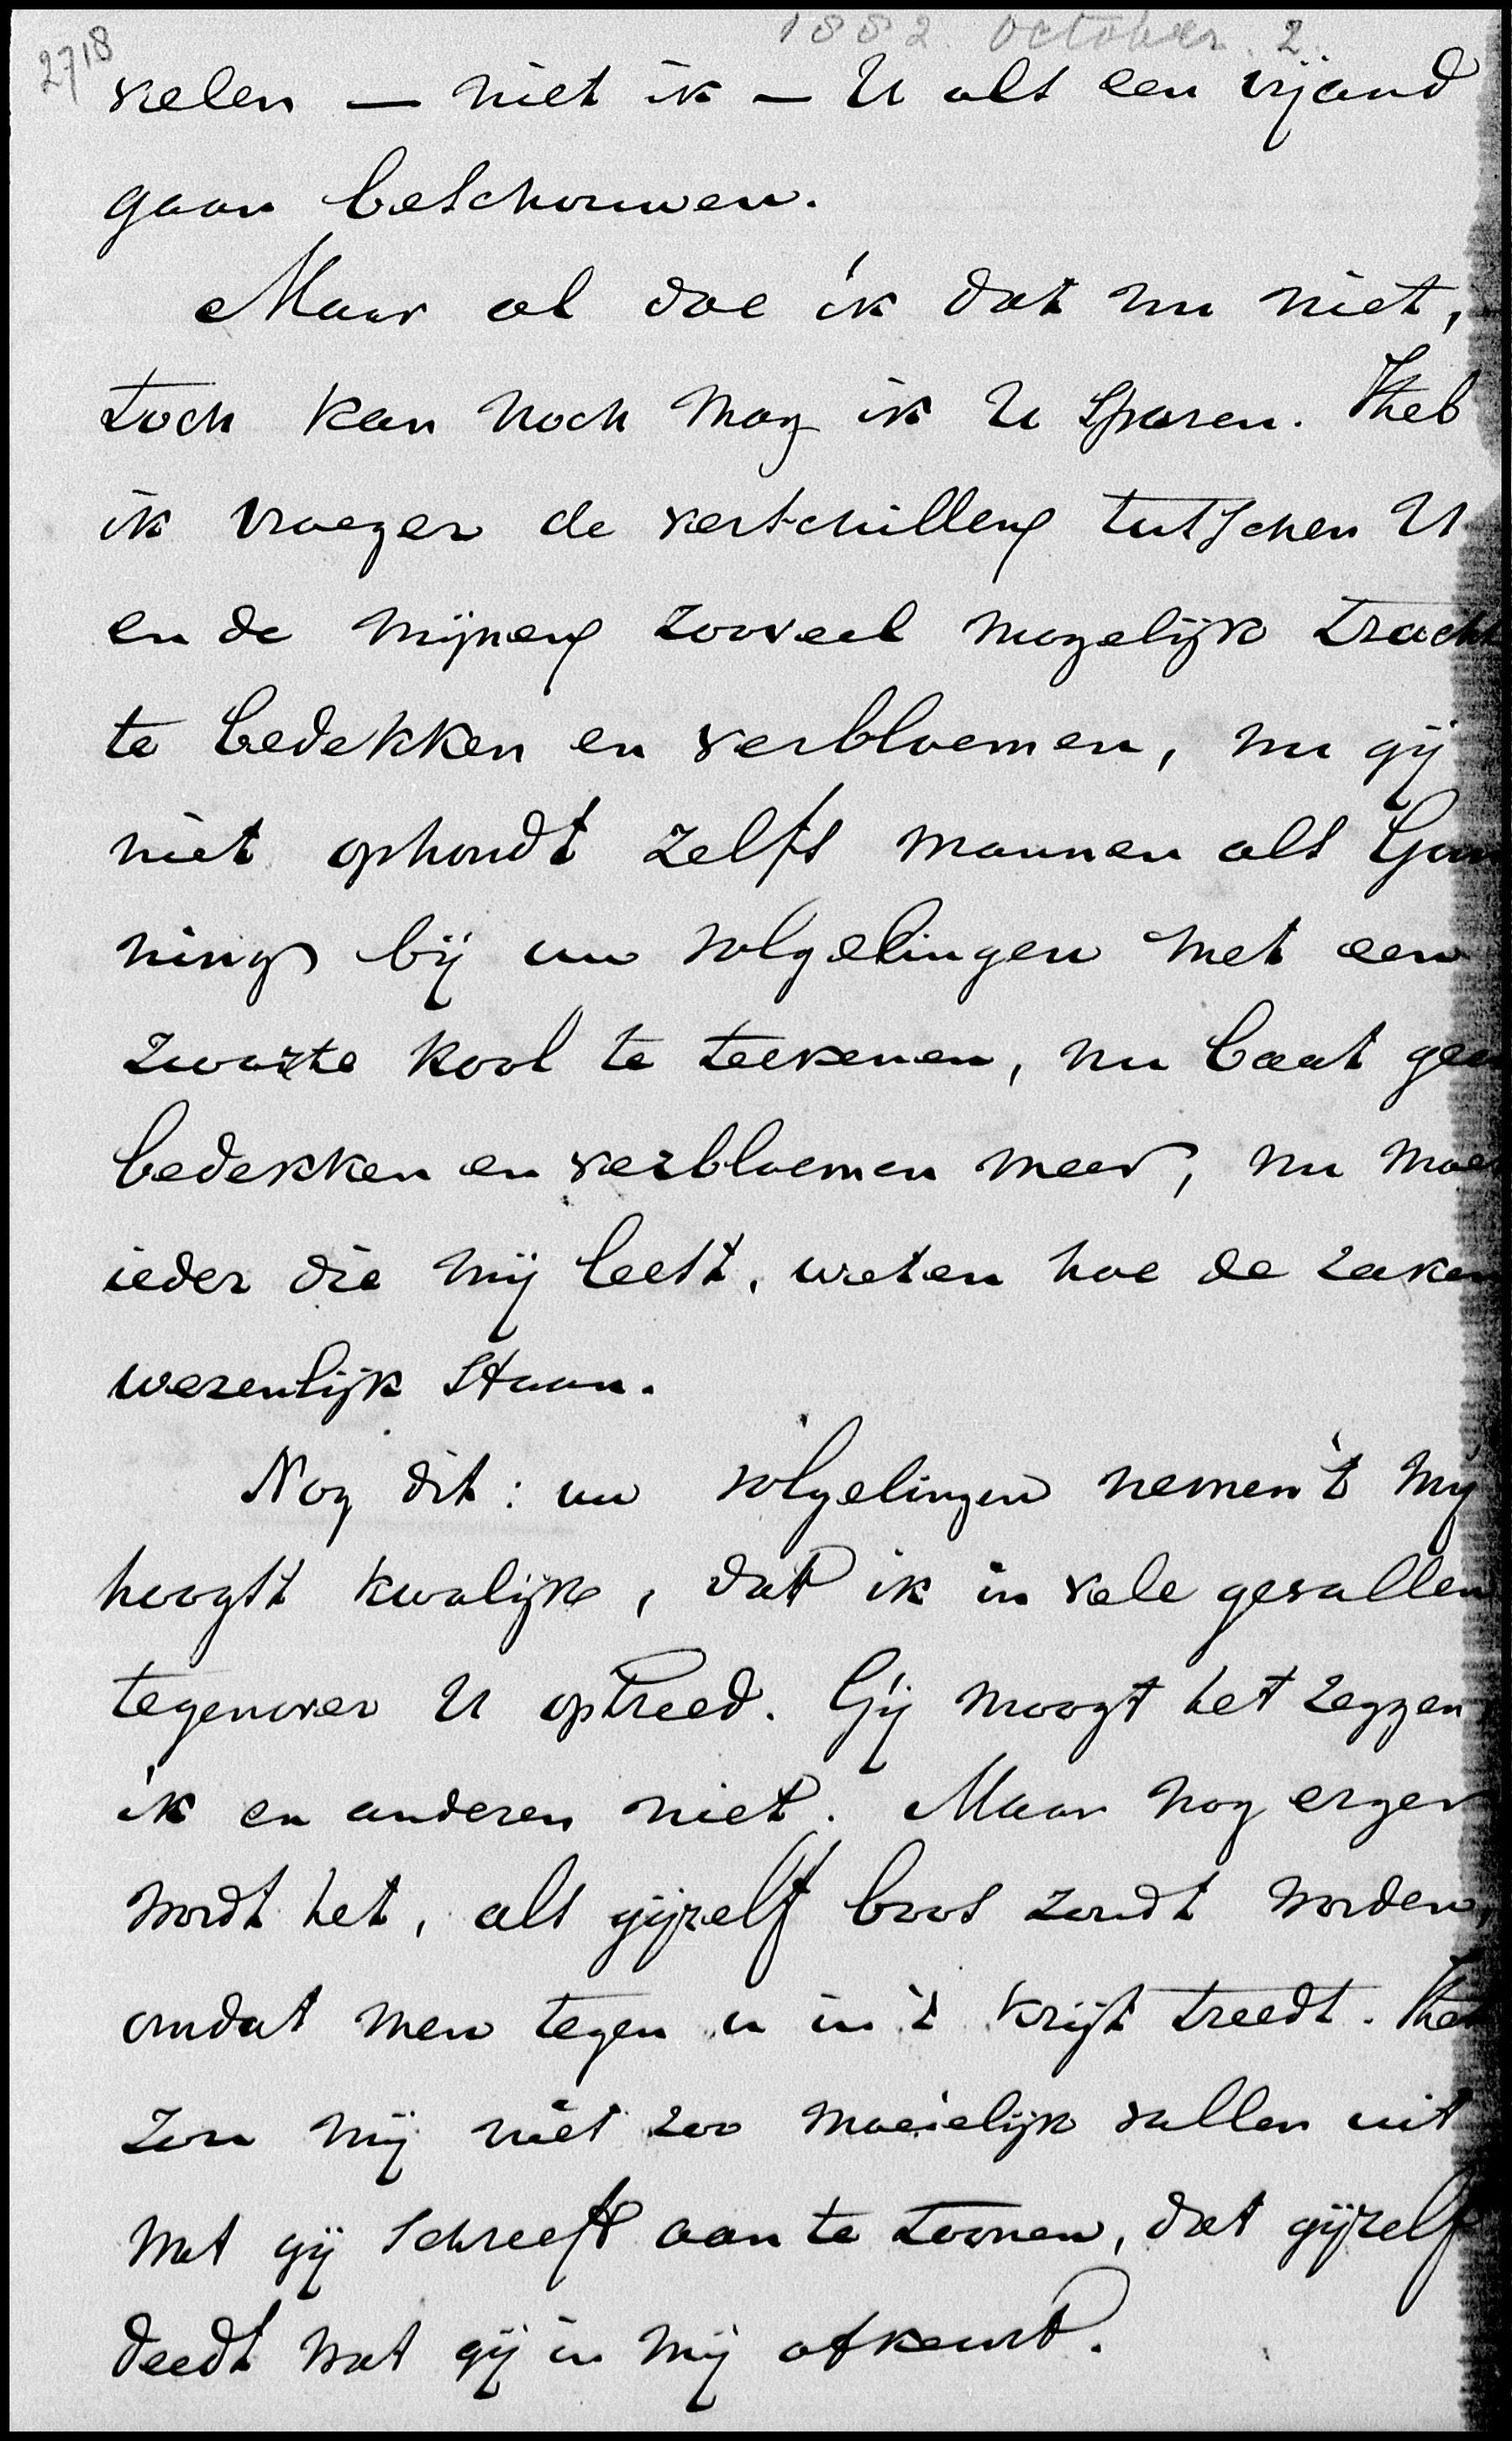 1882. October. 2.
2718
velen — niet ik — U als een vijand
gaan beschouwen.
Maar al doe ik dat nu niet,
toch kan noch mag ik U sparen. Heb
ik vroeger de verschillen tusschen U
en de mijnen zooveel mogelijk tracht
te bedekken en verbloemen, nu gij
niet ophoudt zelfs mannen als Gun
ning bij uw volgelingen met een
zwarte kool te teekenen, nu baat geen
bedekken en verbloemen meer, nu moet
ieder die mij leest, weten hoe de zaken
wezenlijk staan.
Nog dit: uw volgelingen nemen 't mij
hoogst kwalijk, dat ik in vele gevallen
tegenover U optreed. Gij moogt het zeggen,
ik en anderen niet. Maar nog erger
wordt het, als gijzelf boos zoudt worden,
omdat men tegen u in 't krijt treedt. Het
zou mij niet zoo moeielijk vallen uit
wat gij schreeft aan te toonen, dat gijzelf
deedt wat gij in mij afkeurt.